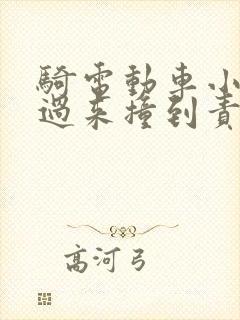 騎電動車小
過來撞到責
高河弓